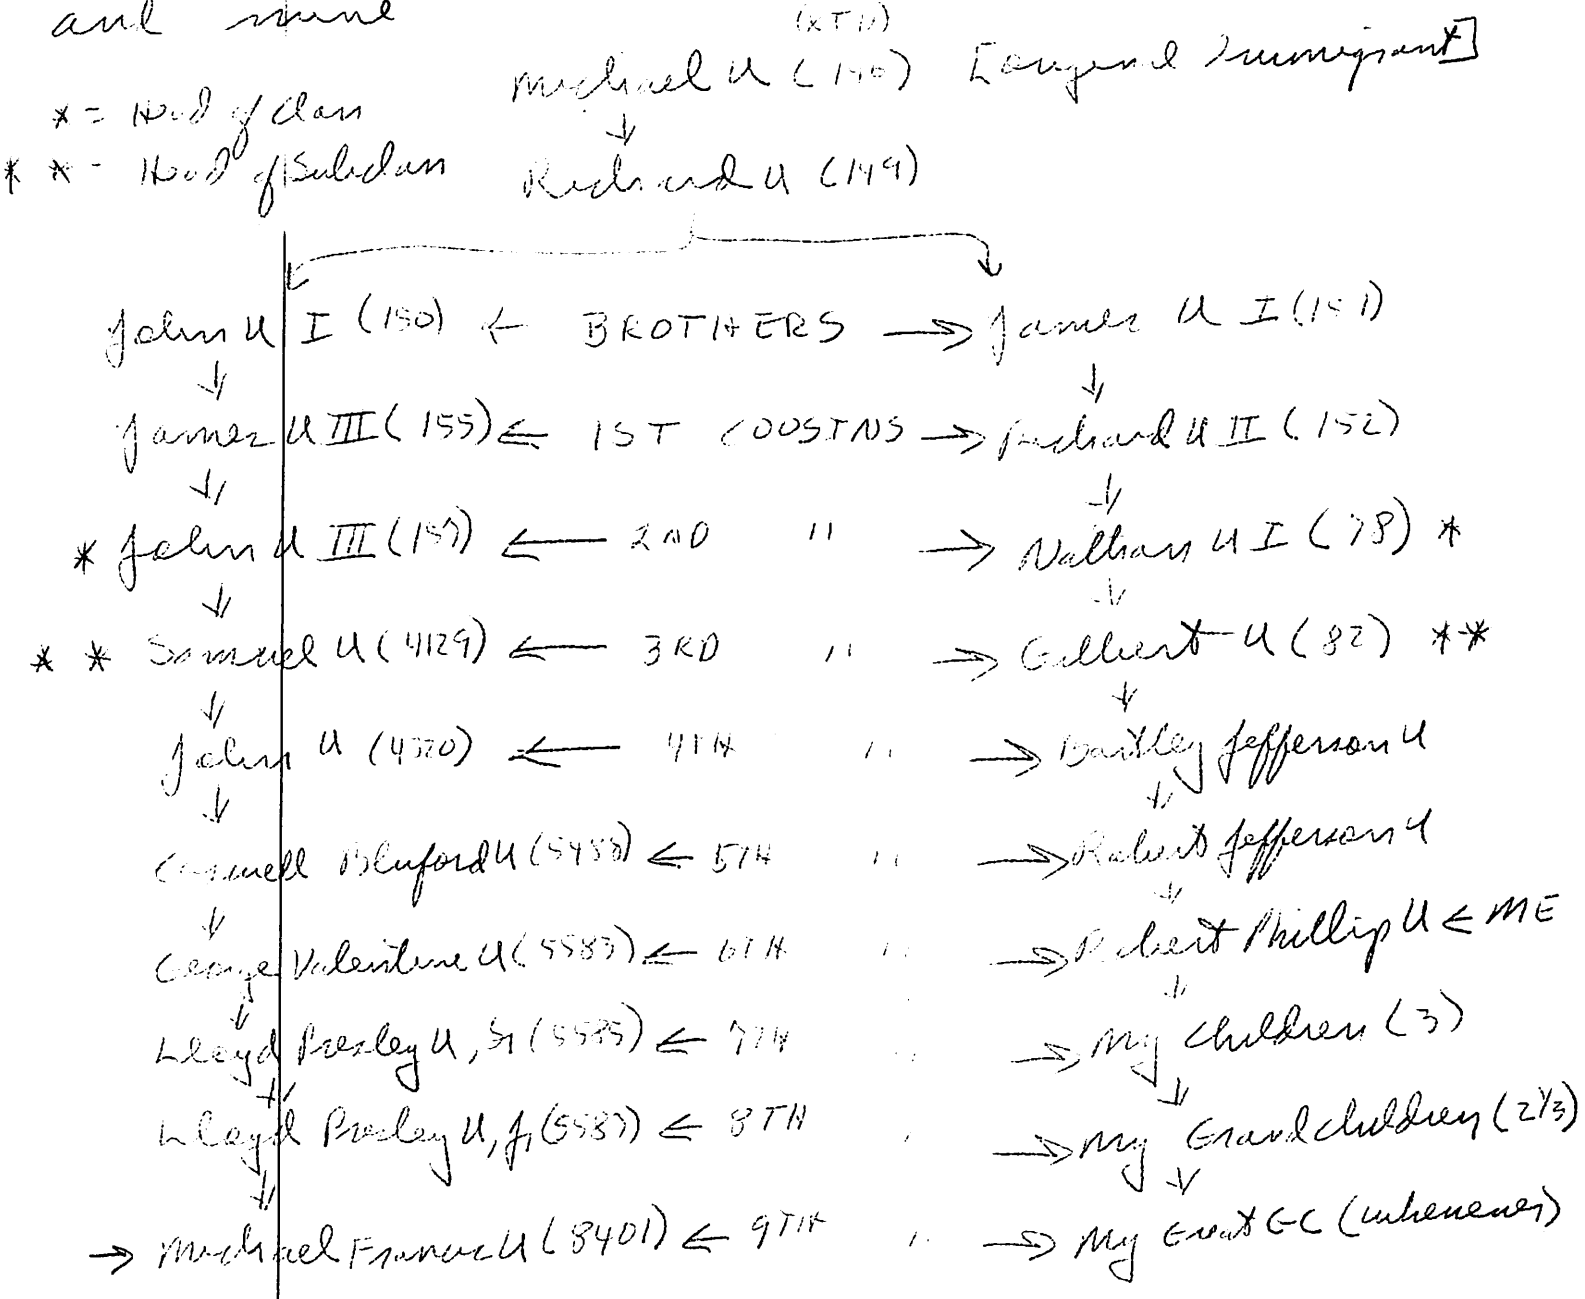 and mine
Michael U (140) [Original Immigrant]
* = Head of Clan
* * - Head of Subclan
Richard U (149)
John U I (150) ← BROTHERS → James U I (151)
James U III (155) ← 1ST COUSINS → Richard U II (152)
* John U III (157) ← 2ND " → Nathan U I (78) *
* * Samuel U (4129) ← 3RD " → Gilbert U (82) **
John U (4320) ← 4TH " → Bartley Jefferson U
Bluford U ← 5TH " → Robert Jefferson U
George Valentine U (5583) ← 6TH " → Robert Phillip U ← ME
Lloyd Presley U, Sr (5585) ← 7TH " → My Children (3)
Lloyd Presley U, Jr (5587) ← 8TH " → My Grandchildren (2 1/3)
→ Michael Francis U (8401) ← 9TH " → My Great GC (whenever)